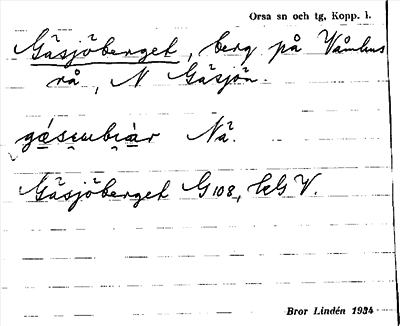 Orsa sn och tg, Kopp. l.
Gåsjöberget, berg på Våmhus
rå, N Gåsjön.
Nå.
Gåsjöberget G 108, V.
Bror Lindén 1934